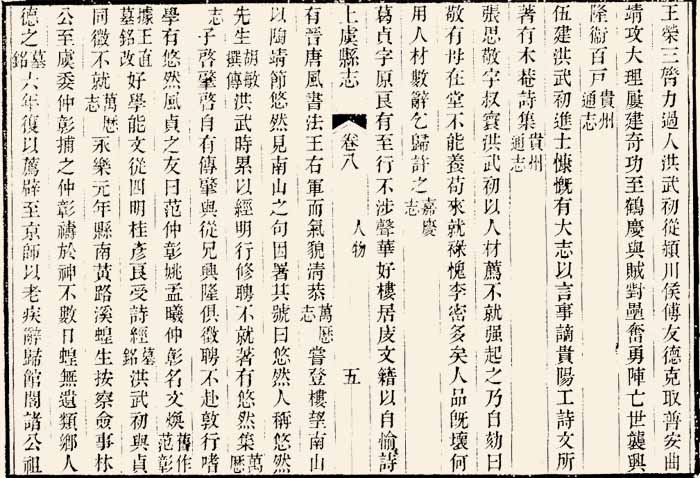 王榮三膂力過人洪武初從潁川侯傅友德克取普安曲
靖攻大理屢建奇功至鶴慶與賊對壘奮勇陣亡世襲興
隆衞百戸貴州通志
伍建洪武初進士慷慨有大志以言事謫貴陽工詩文所
著有木菴詩集貴州通志
張思敬字叔寰洪武初以人材薦不就强起之乃自劾曰
敬有母在堂不能養苟來就祿愧李密多矣人品旣壞何
用人材數辭乞歸許之嘉慶志
葛貞字原良有至行不涉聲華好樓居庋文籍以自愉詩
上虞縣志 卷八 人物 五
有晉唐風書法王右軍而氣貌淸恭萬厯志嘗登樓望南山
以陶靖節悠然見南山之句因署其號曰悠然人稱悠然
先生胡敏撰傳洪武時累以經明行修聘不就著有悠然集萬厯
志子啓肇啓自有傳肇與從兄興隆俱徵聘不赴敦行嗜
學有悠然風貞之友曰范仲彰姚孟曦仲彰名文煥舊作范彰
據王直墓銘改好學能文從四明桂彥良受詩經墓銘洪武初與貞
同徵不就萬厯志永樂元年縣南黃路溪蝗生按察僉事林
公至虞委仲彰捕之仲彰禱於神不數日蝗無遺類鄉人
德之墓銘六年復以薦辟至京師以老疾辭歸館閣諸公祖